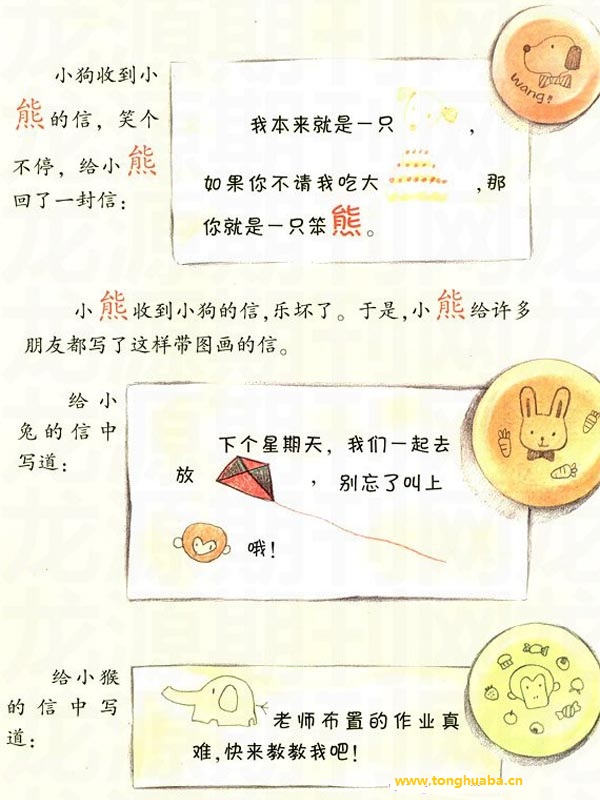 小狗收到小
熊的信，笑个
不停，给小熊
回了一封信：
Wang!
我本来就是一只，
如果你不请我吃大，那
你就是一只笨熊。
小熊收到小狗的信，乐坏了。于是，小熊给许多
朋友都写了这样带图画的信。
给小
兔的信中
写道：
下个星期天，我们一起去
放，别忘了叫上
哦！
给小猴
的信中写
道：
老师布置的作业真
难，快来教教我吧！
www.tonghuaba.cn
龙源期刊网